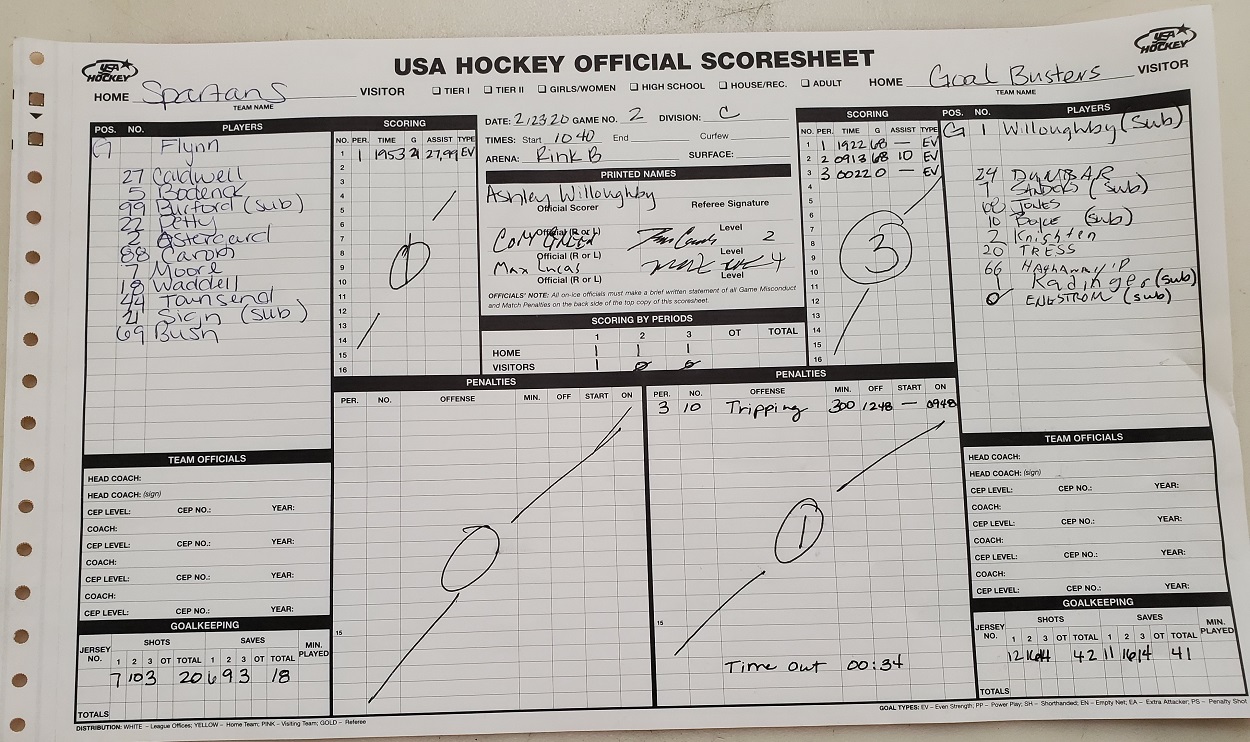 USA HOCKEY
USA HOCKEY OFFICIAL SCORESHEET
USA HOCKEY
HOME Spartans VISITOR
TEAM NAME
☐ TIER I ☐ TIER II ☐ GIRLS/WOMEN ☐ HIGH SCHOOL ☐ HOUSE/REC. ☐ ADULT
HOME Goal Busters VISITOR
TEAM NAME
POS. NO. PLAYERS
G Flynn
27 Caldwell
5 Bodenck
99 Burford (sub)
22 Petty
2 Astergard
88 Caron
7 Moore
18 Waddell
44 Townsend
21 Sign (sub)
69 Bush
SCORING
NO. PER. TIME G ASSIST TYPE
1 1 1953 21 27,99 EV
2
3
4
5
6
7
8
9
10
11
12
13
14
15
16
1
DATE: 2/23 20 GAME NO. 2 DIVISION: C
TIMES: Start 1040 End Curfew
ARENA: Rink B SURFACE:
PRINTED NAMES
Ashley Willoughby
Official Scorer Referee Signature
Official (R or L) Level 2
Official (R or L) Level 4
Max Lucas
Official (R or L) Level
OFFICIALS' NOTE: All on-ice officials must make a brief written statement of all Game Misconduct
and Match Penalties on the back side of the top copy of this scoresheet.
SCORING BY PERIODS
1 2 3 OT TOTAL
HOME 1 1 1
VISITORS 1 0 0
SCORING
NO. PER. TIME G ASSIST TYPE
1 1 1922 68 — EV
2 2 0913 68 10 EV
3 3 0022 0 — EV
4
5
6
7
8
9
10
11
12
13
14
15
16
3
POS. NO. PLAYERS
G 1 Willoughby (sub)
24 DUNBAR
7 SANDERS (sub)
68 JONES
10 Boyce (sub)
2 Knighten
20 TRESS
66
1 Radinger (sub)
0 ENGSTROM (sub)
PENALTIES
PER. NO. OFFENSE MIN. OFF START ON
0
15
PENALTIES
PER. NO. OFFENSE MIN. OFF START ON
3 10 Tripping 300 1248 — 0948
1
15
Time out 00:34
TEAM OFFICIALS
HEAD COACH:
HEAD COACH: (sign)
CEP LEVEL: CEP NO.: YEAR:
COACH:
CEP LEVEL: CEP NO.: YEAR:
COACH:
CEP LEVEL: CEP NO.: YEAR:
COACH:
CEP LEVEL: CEP NO.: YEAR:
GOALKEEPING
JERSEY NO. SHOTS SAVES MIN. PLAYED
1 2 3 OT TOTAL 1 2 3 OT TOTAL
7 10 3 20 6 9 3 18
TOTALS
TEAM OFFICIALS
HEAD COACH:
HEAD COACH: (sign)
CEP LEVEL: CEP NO.: YEAR:
COACH:
CEP LEVEL: CEP NO.: YEAR:
COACH:
CEP LEVEL: CEP NO.: YEAR:
COACH:
CEP LEVEL: CEP NO.: YEAR:
GOALKEEPING
JERSEY NO. SHOTS SAVES MIN. PLAYED
1 2 3 OT TOTAL 1 2 3 OT TOTAL
12 16 14 42 11 16 14 41
TOTALS
DISTRIBUTION: WHITE – League Offices; YELLOW – Home Team; PINK – Visiting Team; GOLD – Referee
GOAL TYPES: EV – Even Strength; PP – Power Play; SH – Shorthanded; EN – Empty Net; EA – Extra Attacker; PS – Penalty Shot